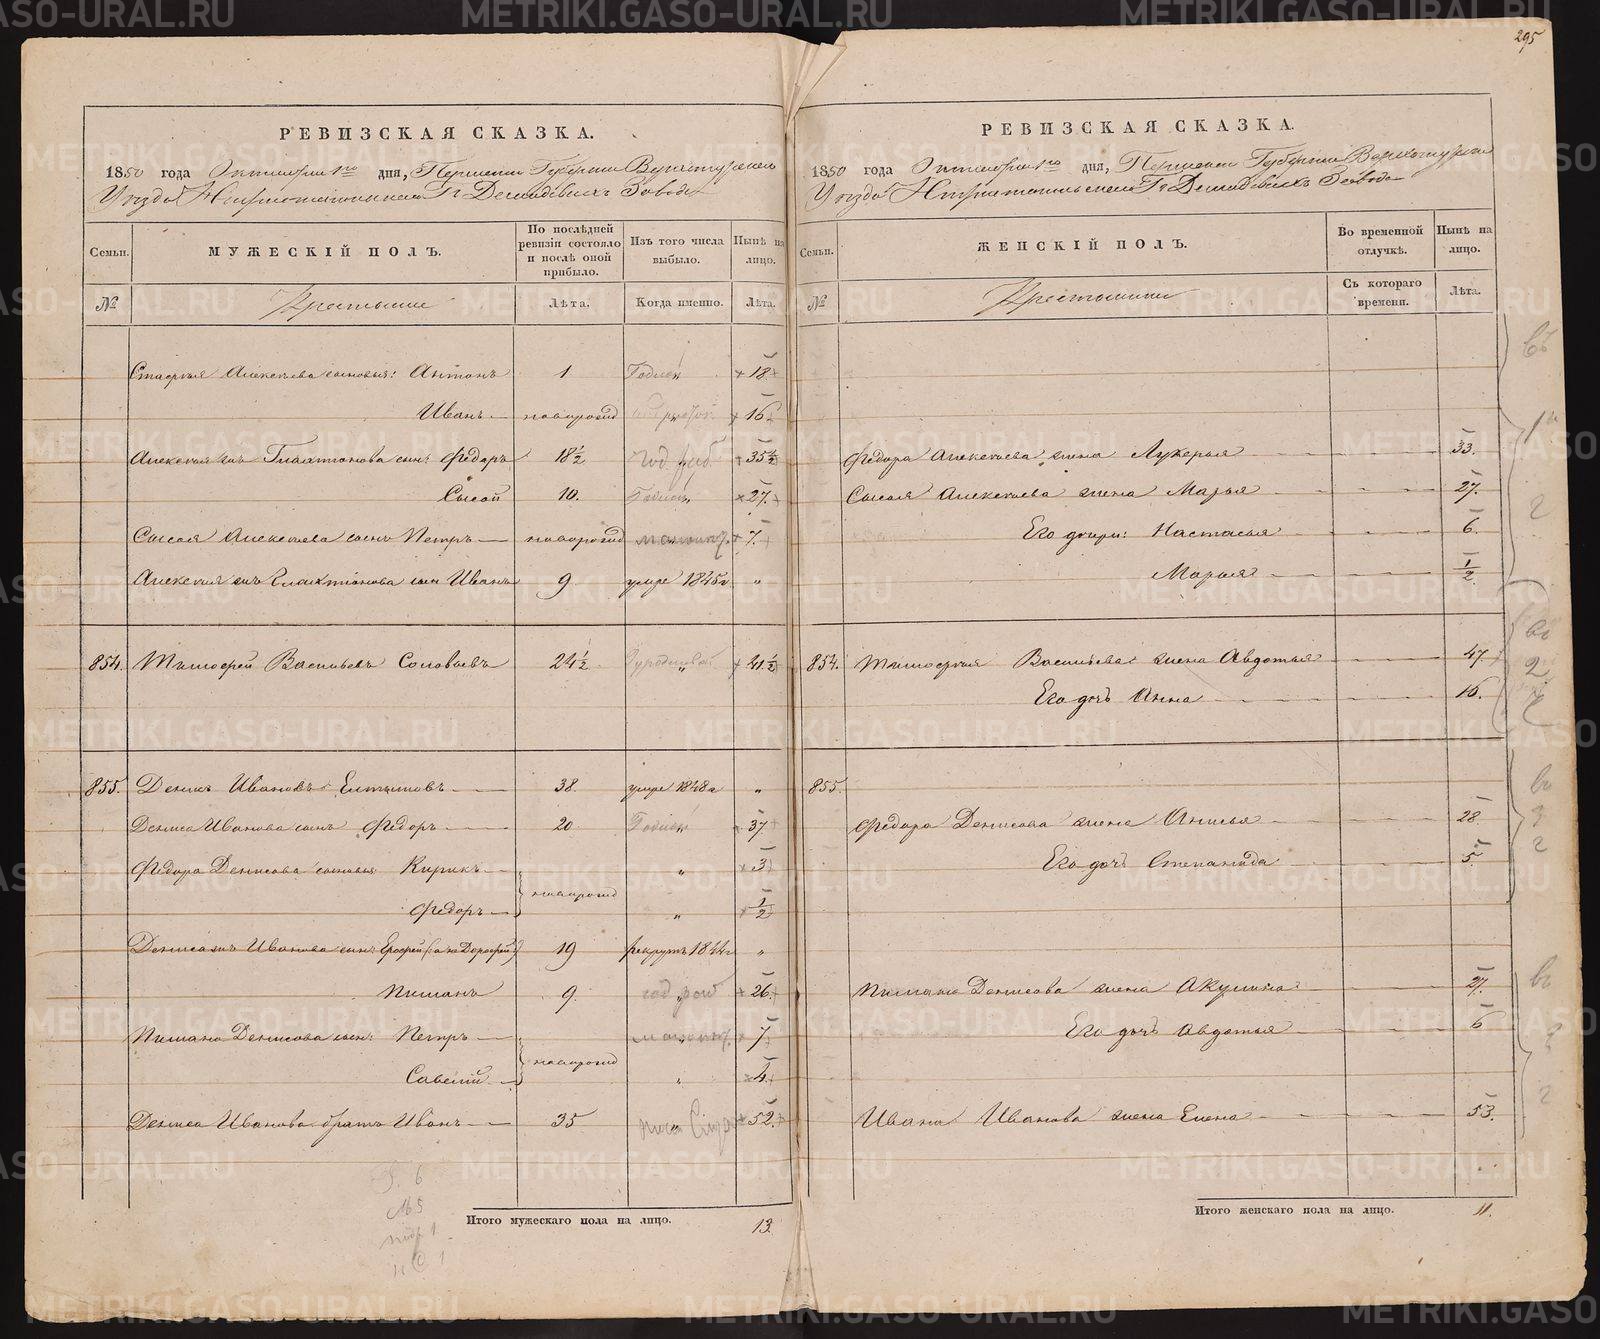 295
РЕВИЗСКАЯ СКАЗКА.
1850 года Октября 1го дня, Пермской Губернии Верхотурскаго
Уѣзда Нижнетагильскаго Гг Демидовыхъ Завода
Семьи.
МУЖЕСКІЙ ПОЛЪ.
По послѣдней ревизіи состояло и послѣ оной прибыло.
Изъ того числа выбыло.
Нынѣ на лицо.
№
Крестьяне
Лѣта.
Когда именно.
Лѣта.
Алексѣева сыновья: Антонъ 1 Годной 18
Иванъ новорожд 16
Алексѣя сынъ Ѳедоръ 18½ 35½
Сысой 10. Годной 27.
Сысоя Алексѣева сынъ Петръ новорожд 7.
Алексѣя сынъ Иванъ 9 умре 1845г "
854. Тимофей Васильевъ Соловьевъ 24½ 41½
855. Денисъ Ивановъ 38. умре 1848г "
Дениса Иванова сынъ Ѳедоръ 20 Годной 37
Ѳедора Денисова сыновья Кирикъ новорожд " 3
Ѳедоръ " ½
Дениса Иванова сынъ Ерофей (онъ Дорофей) 19 рекрутъ 1844г "
Пиманъ 9. год раб 26.
Пимана Денисова сын: Петръ новорожд 7
Савелій " 4
Дениса Иванова братъ Иванъ 35 52.
Итого мужескаго пола на лицо. 13
РЕВИЗСКАЯ СКАЗКА.
1850 года Октября 1го дня, Пермской Губернии Верхотурскаго
Уѣзда Нижнетагильскаго Гг Демидовыхъ Завода
Семьи.
ЖЕНСКІЙ ПОЛЪ.
Во временной отлучкѣ.
Нынѣ на лицо.
№
Крестьянки
Съ котораго времени.
Лѣта.
Ѳедора Алексѣева жена Лукерья 33.
Сысоя Алексѣева жена Марья 27.
Его дочери: Настасья 6
Марья ½
854. Тимофея Васильева жена Авдотья 47
Его дочь Анна 16.
855.
Ѳедора Денисова жена Анисья 28
Его дочь Степанида 5.
Пимана Денисова жена Акулина 27.
Его дочь Авдотья 6
Ивана Иванова жена Елена 53.
Итого женскаго пола на лицо. 11.
METRIKI.GASO-URAL.RU